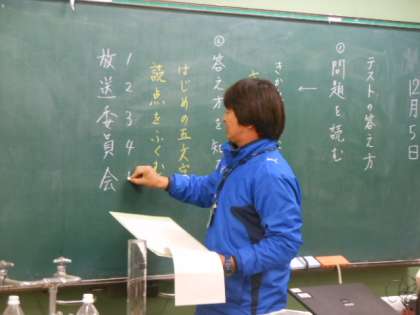 12月 日
テストの答え方
①問題を読む
②答え方を知
はじめの五文字
読点をふくむ
1 2 3 4
放送委員会